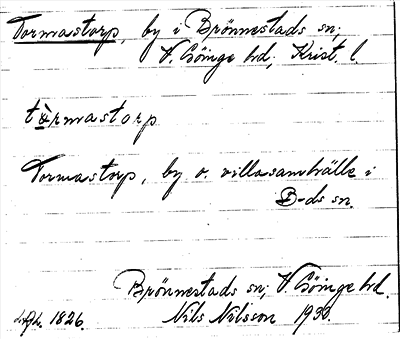 Tormastorp, by i Brönnestads sn;
V. Göinge hd; Krist. l.
tòrmastorp
Tormastorp, by o. villasamhälle i
B-ds sn.
Brönnestads sn; V. Göinge hd.
1826. Nils Nilsson 1932.